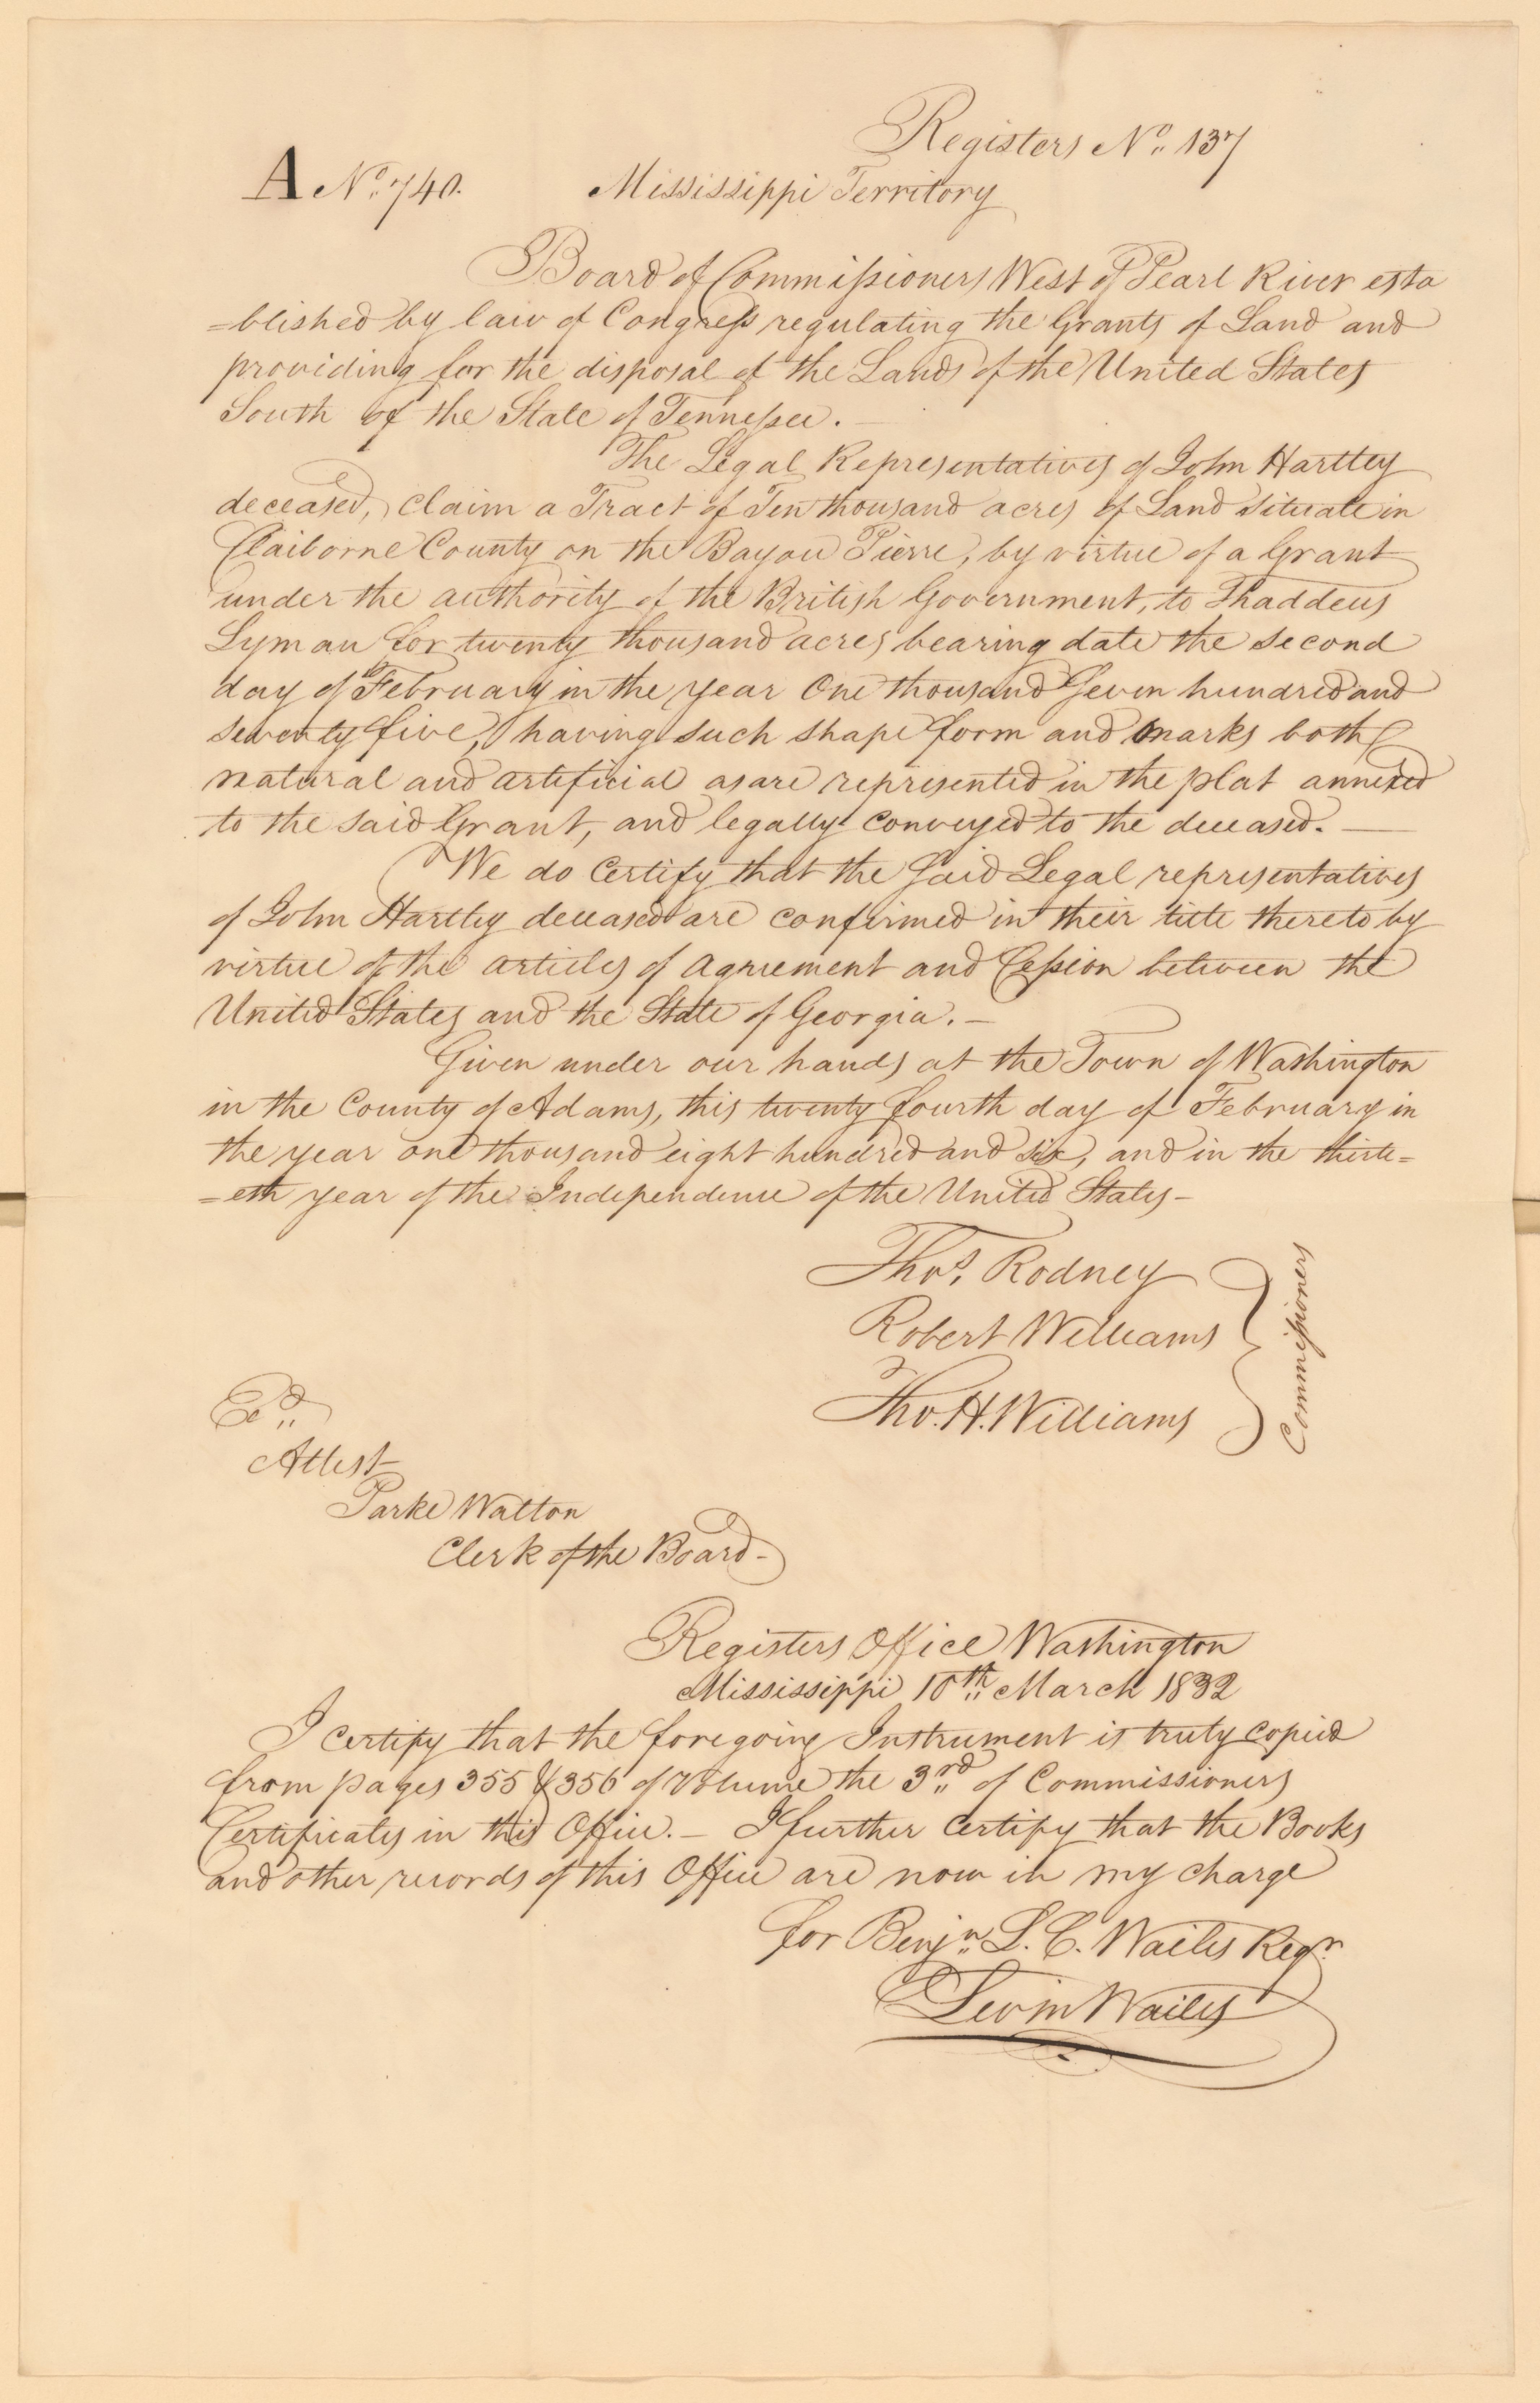 Registers No. 137
A No. 740.
Mississippi Territory
Board of Commissioners West of Pearl River esta
=blished by law of Congress regulating the Grants of Land and
providing for the disposal of the Lands of the United States
South of the State of Tennessee. —
The Legal Representatives of John Hartley
deceased, claim a Tract of Ten thousand acres of Land situate in
Claiborne County on the Bayou Pierre, by virtue of a Grant
under the authority of the British Government, to Thaddeus
Lyman for twenty thousand acres bearing date the second
day of February in the year One thousand Seven hundred and
seventy five, having such shape form and marks both
natural and artificial as are represented in the plat annexed
to the said Grant, and legally conveyed to the deceased. —
We do Certify that the said Legal representatives
of John Hartley deceased are confirmed in their title thereto by
virtue of the articles of agreement and Cession between the
United States and the State of Georgia. —
Given under our hands at the Town of Washington
in the County of Adams, this twenty fourth day of February in
the year one thousand eight hundred and six, and in the thirti=
=eth year of the Independence of the United States —
Thos. Rodney
Robert Williams
Tho. H. Williams
Commissioners
Attest
Parke Walton
Clerk of the Board —
Registers Office Washington
Mississippi 10th March 1832
I certify that the foregoing Instrument is truly copied
from pages 355 & 356 of Volume the 3rd of Commissioners
Certificates in this Office. — I further certify that the Books
and other records of this Office are now in my charge
for Benjn. L. C. Wailes Regr.
Levin Wailes